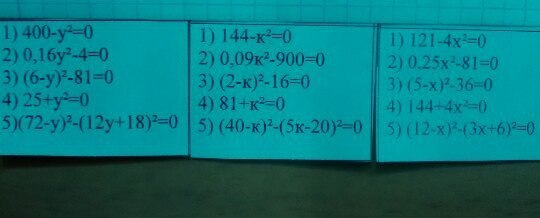 1) 400-у²=0
2) 0,16у²-4=0
3) (6-у)²-81=0
4) 25+у²=0
5)(72-у)²-(12у+18)²=0
1) 144-к²=0
2) 0,09к²-900=0
3) (2-к)²-16=0
4) 81+к²=0
5) (40-к)²-(5к-20)²=0
1) 121-4х²=0
2) 0,25х²-81=0
3) (5-х)²-36=0
4) 144+4х²=0
5) (12-х)²-(3х+6)²=0